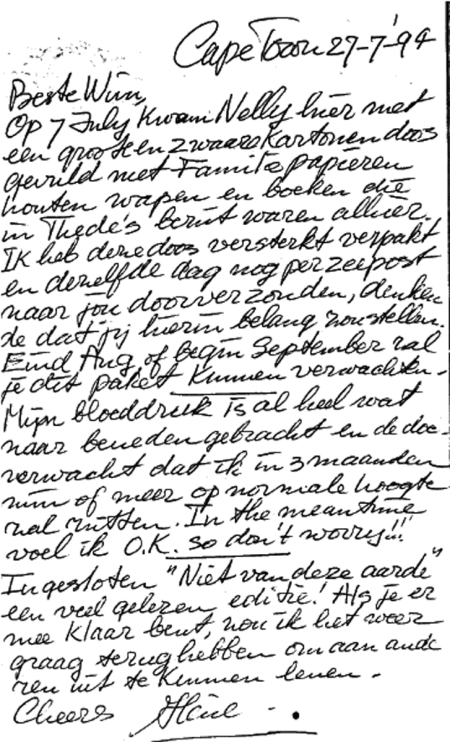 Cape Town 27-7-'94
Beste Wim,
Op 7 July kwam Nelly hier met
een groote en zwaare kartonen doos
gevuld met Familie papieren
houten wapen en boeken die
in Thede's bezit waren alhier.
Ik heb deze doos versterkt verpakt
en dezelfde dag nog per zeepost
naar jou doorverzonden, denken
de dat jij hierin belang zou stellen.
Eind Aug. of begin September zal
je dit paket kunnen verwachten.
Mijn bloeddruk is al heel wat
naar beneden gebracht en de doc
verwacht dat ik in 3 maanden
min of meer op normale hoogte
zal zitten. In the meantime
voel ik O.K. so don't worry!!!
Ingesloten "Niet van deze aarde"
een veel gelezen editie! Als je er
mee klaar bent, zou ik het weer
graag terug hebben om aan ande
ren uit te kunnen lenen.
Cheers